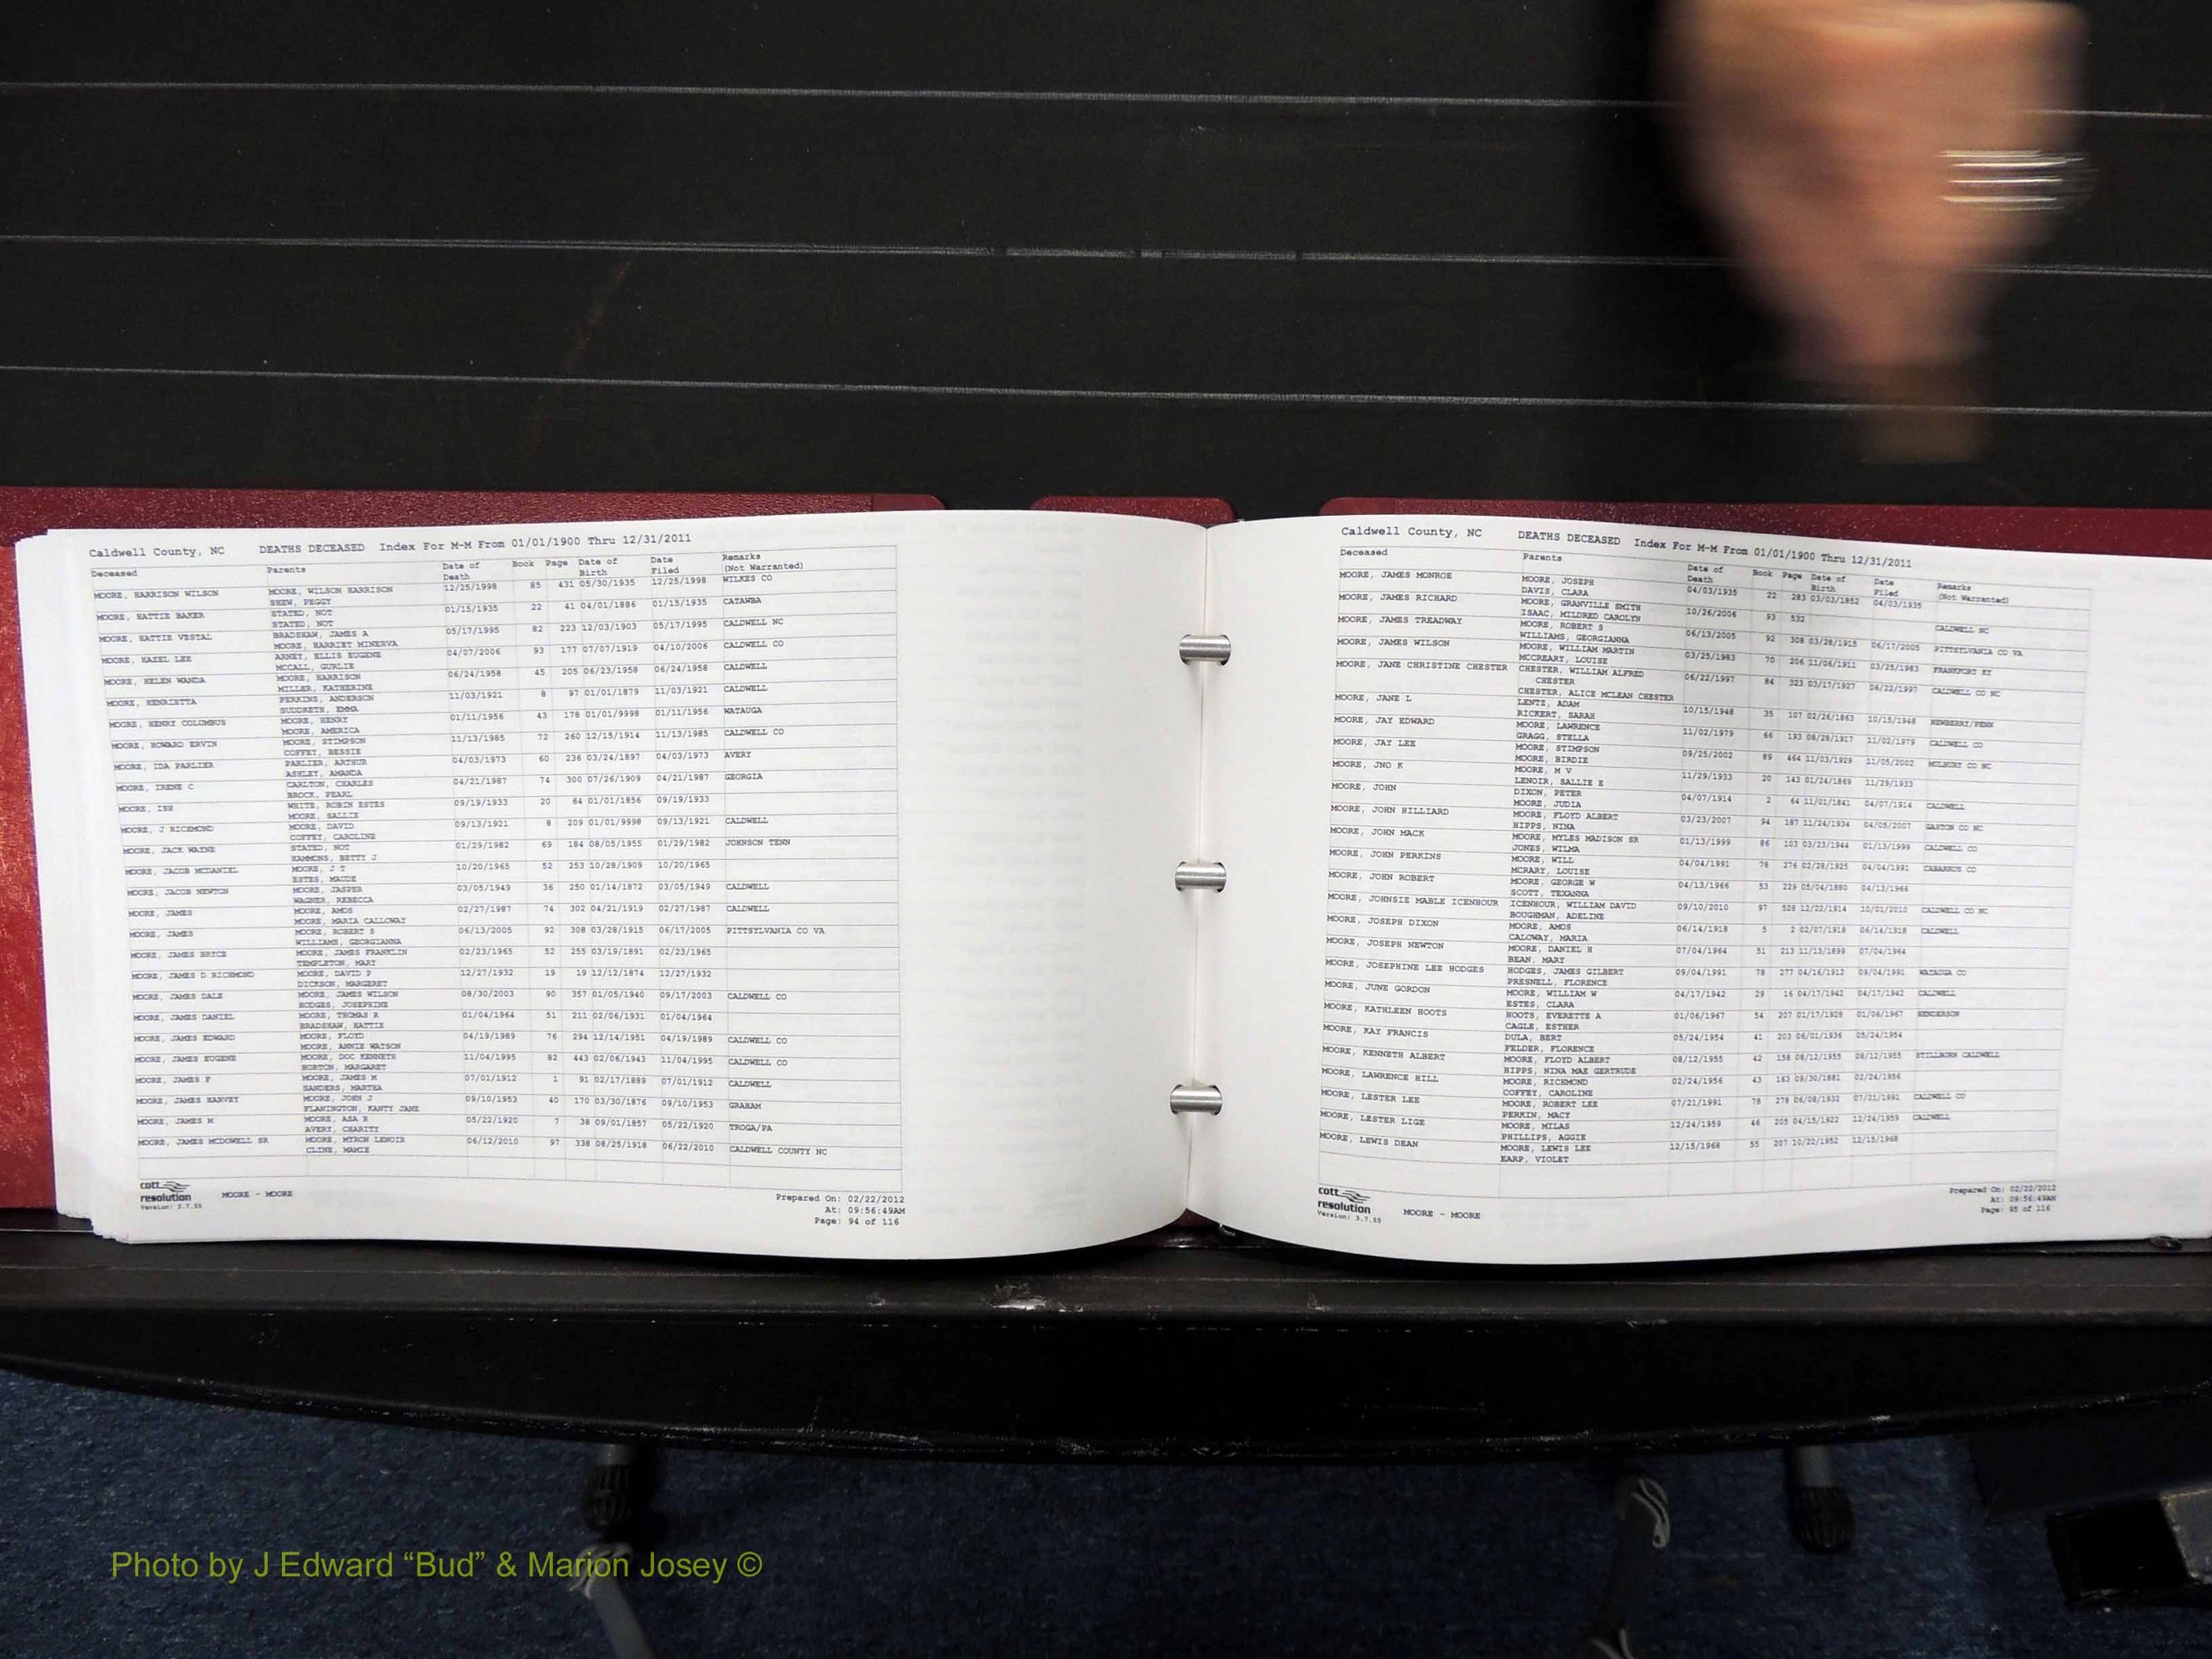 Caldwell County, NC DEATHS DECEASED Index For M-M From 01/01/1900 Thru 12/31/2011
Deceased Parents Date of Death Book Page Date of Birth Date Filed Remarks (Not Warranted)
MOORE, HARRISON WILSON MOORE, WILSON HARRISON 12/25/1998 85 431 05/30/1935 12/25/1998 WILKES CO
SHEW, PEGGY
MOORE, HATTIE BAKER STATED, NOT 01/15/1935 22 41 04/01/1886 01/15/1935 CATAWBA
STATED, NOT
MOORE, HATTIE VESTAL BRADSHAW, JAMES A 05/17/1995 82 223 12/03/1903 05/17/1995 CALDWELL NC
MOORE, HARRIET MINERVA
MOORE, HAZEL LEE ARNEY, ELLIS EUGENE 04/07/2006 93 177 07/07/1919 04/10/2006 CALDWELL CO
MCCALL, GURLIE
MOORE, HELEN WANDA MOORE, HARRISON 06/24/1958 45 205 06/23/1958 06/24/1958 CALDWELL
MILLER, KATHERINE
MOORE, HENRIETTA PERKINS, ANDERSON 11/03/1921 8 97 01/01/1879 11/03/1921 CALDWELL
SUDDRETH, EMMA
MOORE, HENRY COLUMBUS MOORE, HENRY 01/11/1956 43 178 01/01/9998 01/11/1956 WATAUGA
MOORE, AMERICA
MOORE, HOWARD ERVIN MOORE, STIMPSON 11/13/1985 72 260 12/15/1914 11/13/1985 CALDWELL CO
COFFEY, BESSIE
MOORE, IDA PARLIER PARLIER, ARTHUR 04/03/1973 60 236 03/24/1897 04/03/1973 AVERY
ASHLEY, AMANDA
MOORE, IRENE C CARLTON, CHARLES 04/21/1987 74 300 07/26/1909 04/21/1987 GEORGIA
BROCK, PEARL
MOORE, ISH WHITE, ROBIN ESTES 09/19/1933 20 64 01/01/1856 09/19/1933
MOORE, SALLIE
MOORE, J RICHMOND MOORE, DAVID 09/13/1921 8 209 01/01/9998 09/13/1921 CALDWELL
COFFEY, CAROLINE
MOORE, JACK WAYNE STATED, NOT 01/29/1982 69 184 08/05/1955 01/29/1982 JOHNSON TENN
HAMMONS, BETTY J
MOORE, JACOB MCDANIEL MOORE, J T 10/20/1965 52 253 10/28/1909 10/20/1965
ESTES, MAUDE
MOORE, JACOB NEWTON MOORE, JASPER 03/05/1949 36 250 01/14/1872 03/05/1949 CALDWELL
WAGNER, REBECCA
MOORE, JAMES MOORE, AMOS 02/27/1987 74 302 04/21/1919 02/27/1987 CALDWELL
MOORE, MARIA CALLOWAY
MOORE, JAMES MOORE, ROBERT S 06/13/2005 92 308 03/28/1915 06/17/2005 PITTSYLVANIA CO VA
WILLIAMS, GEORGIANNA
MOORE, JAMES BRICE MOORE, JAMES FRANKLIN 02/23/1965 52 255 03/19/1891 02/23/1965
TEMPLETON, MARY
MOORE, JAMES D RICHMOND MOORE, DAVID P 12/27/1932 19 19 12/12/1874 12/27/1932
DICKSON, MARGERET
MOORE, JAMES DALE MOORE, JAMES WILSON 08/30/2003 90 357 01/05/1940 09/17/2003 CALDWELL CO
HODGES, JOSEPHINE
MOORE, JAMES DANIEL MOORE, THOMAS R 01/04/1964 51 211 02/06/1931 01/04/1964
BRADSHAW, HATTIE
MOORE, JAMES EDWARD MOORE, FLOYD 04/19/1989 76 294 12/14/1951 04/19/1989 CALDWELL CO
MOORE, ANNIE WATSON
MOORE, JAMES EUGENE MOORE, DOC KENNETH 11/04/1995 82 443 02/06/1943 11/04/1995 CALDWELL CO
HORTON, MARGARET
MOORE, JAMES F MOORE, JAMES M 07/01/1912 1 91 02/17/1889 07/01/1912 CALDWELL
SANDERS, MARTHA
MOORE, JAMES HARVEY MOORE, JOHN J 09/10/1953 40 170 03/30/1876 09/10/1953 GRAHAM
FLANINGTON, KANTY JANE
MOORE, JAMES M MOORE, ASA R 05/22/1920 7 38 09/01/1857 05/22/1920 TROGA/PA
AVERY, CHARITY
MOORE, JAMES MCDOWELL SR MOORE, MYRON LENOIR 06/12/2010 97 338 08/25/1918 06/22/2010 CALDWELL COUNTY NC
CLINE, MAMIE
cott
resolution MOORE - MOORE Prepared On: 02/22/2012
Version: 3.7.55 At: 09:56:49AM
Page: 94 of 116
Caldwell County, NC DEATHS DECEASED Index For M-M From 01/01/1900 Thru 12/31/2011
Deceased Parents Date of Death Book Page Date of Birth Date Filed Remarks (Not Warranted)
MOORE, JAMES MONROE MOORE, JOSEPH 04/03/1935 22 283 03/03/1852 04/03/1935
DAVIS, CLARA
MOORE, JAMES RICHARD MOORE, GRANVILLE SMITH 10/26/2006 93 532 CALDWELL NC
ISAAC, MILDRED CAROLYN
MOORE, JAMES TREADWAY MOORE, ROBERT S 06/13/2005 92 308 03/28/1915 06/17/2005 PITTSYLVANIA CO VA
WILLIAMS, GEORGIANNA
MOORE, JAMES WILSON MOORE, WILLIAM MARTIN 03/25/1983 70 206 11/06/1911 03/25/1983 FRANKFORT KY
MCCREARY, LOUISE
MOORE, JANE CHRISTINE CHESTER CHESTER, WILLIAM ALFRED 06/22/1997 84 323 03/17/1927 06/22/1997 CALDWELL CO NC
CHESTER
CHESTER, ALICE MCLEAN CHESTER
MOORE, JANE L LENTZ, ADAM 10/15/1948 35 107 02/26/1863 10/15/1948 NEWBERRY/PENN
RICKERT, SARAH
MOORE, JAY EDWARD MOORE, LAWRENCE 11/02/1979 66 193 08/28/1917 11/02/1979 CALDWELL CO
GRAGG, STELLA
MOORE, JAY LEE MOORE, STIMPSON 09/25/2002 89 464 11/03/1929 11/05/2002 CO NC
MOORE, BIRDIE
MOORE, JNO K MOORE, M V 11/29/1933 20 143 01/24/1869 11/29/1933
LENOIR, SALLIE E
MOORE, JOHN DIXON, PETER 04/07/1914 2 64 11/01/1841 04/07/1914 CALDWELL
MOORE, JUDIA
MOORE, JOHN HILLIARD MOORE, FLOYD ALBERT 03/23/2007 94 187 11/24/1934 04/05/2007 GASTON CO NC
HIPPS, NINA
MOORE, JOHN MACK MOORE, MYLES MADISON SR 01/13/1999 86 103 03/23/1944 01/13/1999 CALDWELL CO
JONES, WILMA
MOORE, JOHN PERKINS MOORE, WILL 04/04/1991 78 276 02/28/1925 04/04/1991 CABARRUS CO
MCRARY, LOUISE
MOORE, JOHN ROBERT MOORE, GEORGE W 04/13/1966 53 229 05/04/1880 04/13/1966
SCOTT, TEXANNA
MOORE, JOHNSIE MABLE ICENHOUR ICENHOUR, WILLIAM DAVID 09/10/2010 97 528 12/22/1914 10/01/2010 CALDWELL CO NC
BOUGHMAN, ADELINE
MOORE, JOSEPH DIXON MOORE, AMOS 06/14/1918 5 2 02/07/1918 06/14/1918 CALDWELL
CALOWAY, MARIA
MOORE, JOSEPH NEWTON MOORE, DANIEL H 07/04/1964 51 213 11/13/1899 07/04/1964
BEAN, MARY
MOORE, JOSEPHINE LEE HODGES HODGES, JAMES GILBERT 09/04/1991 78 277 04/16/1912 09/04/1991 WATAUGA CO
PRESNELL, FLORENCE
MOORE, JUNE GORDON MOORE, WILLIAM W 04/17/1942 29 16 04/17/1942 04/17/1942 CALDWELL
ESTES, CLARA
MOORE, KATHLEEN HOOTS HOOTS, EVERETTE A 01/06/1967 54 207 01/17/1928 01/06/1967 HENDERSON
CAGLE, ESTHER
MOORE, KAY FRANCIS DULA, BERT 05/24/1954 41 203 06/01/1936 05/24/1954
FELDER, FLORENCE
MOORE, KENNETH ALBERT MOORE, FLOYD ALBERT 08/12/1955 42 158 08/12/1955 08/12/1955 STILLBORN CALDWELL
HIPPS, NINA MAE GERTRUDE
MOORE, LAWRENCE HILL MOORE, RICHMOND 02/24/1956 43 163 09/30/1881 02/24/1956
COFFEY, CAROLINE
MOORE, LESTER LEE MOORE, ROBERT LEE 07/21/1991 78 278 06/08/1932 07/21/1991 CALDWELL CO
PERKIN, MACY
MOORE, LESTER LIGE MOORE, MILAS 12/24/1959 46 205 04/15/1922 12/24/1959 CALDWELL
PHILLIPS, AGGIE
MOORE, LEWIS DEAN MOORE, LEWIS LEE 12/15/1968 55 207 10/22/1952 12/15/1968
EARP, VIOLET
cott
resolution MOORE - MOORE Prepared On: 02/22/2012
Version: 3.7.55 At: 09:56:49AM
Page: 95 of 116
Photo by J Edward “Bud” & Marion Josey ©